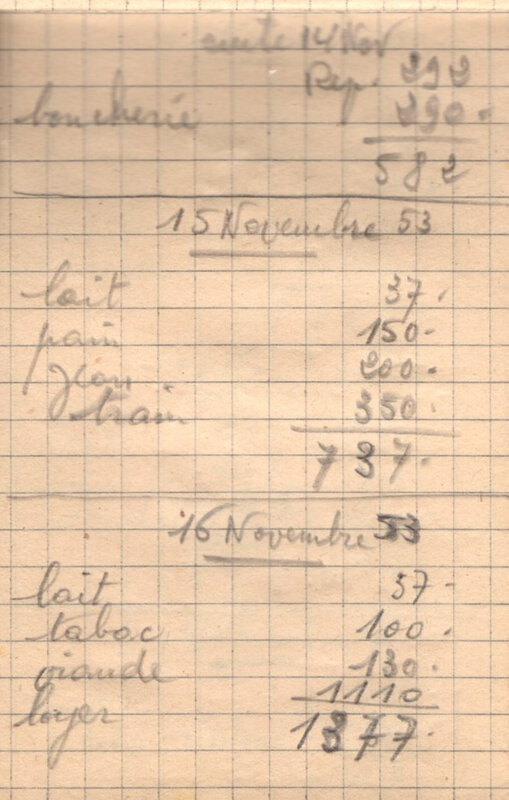 suite 14 Nov
Rep. 292
boucherie 290.
582
15 Novembre 53
lait 37.
pain 150.
Jean
200.
train 350.
737.
16 Novembre 53
lait 37.
tabac 100.
viande 130.
loyer 1110
1377.